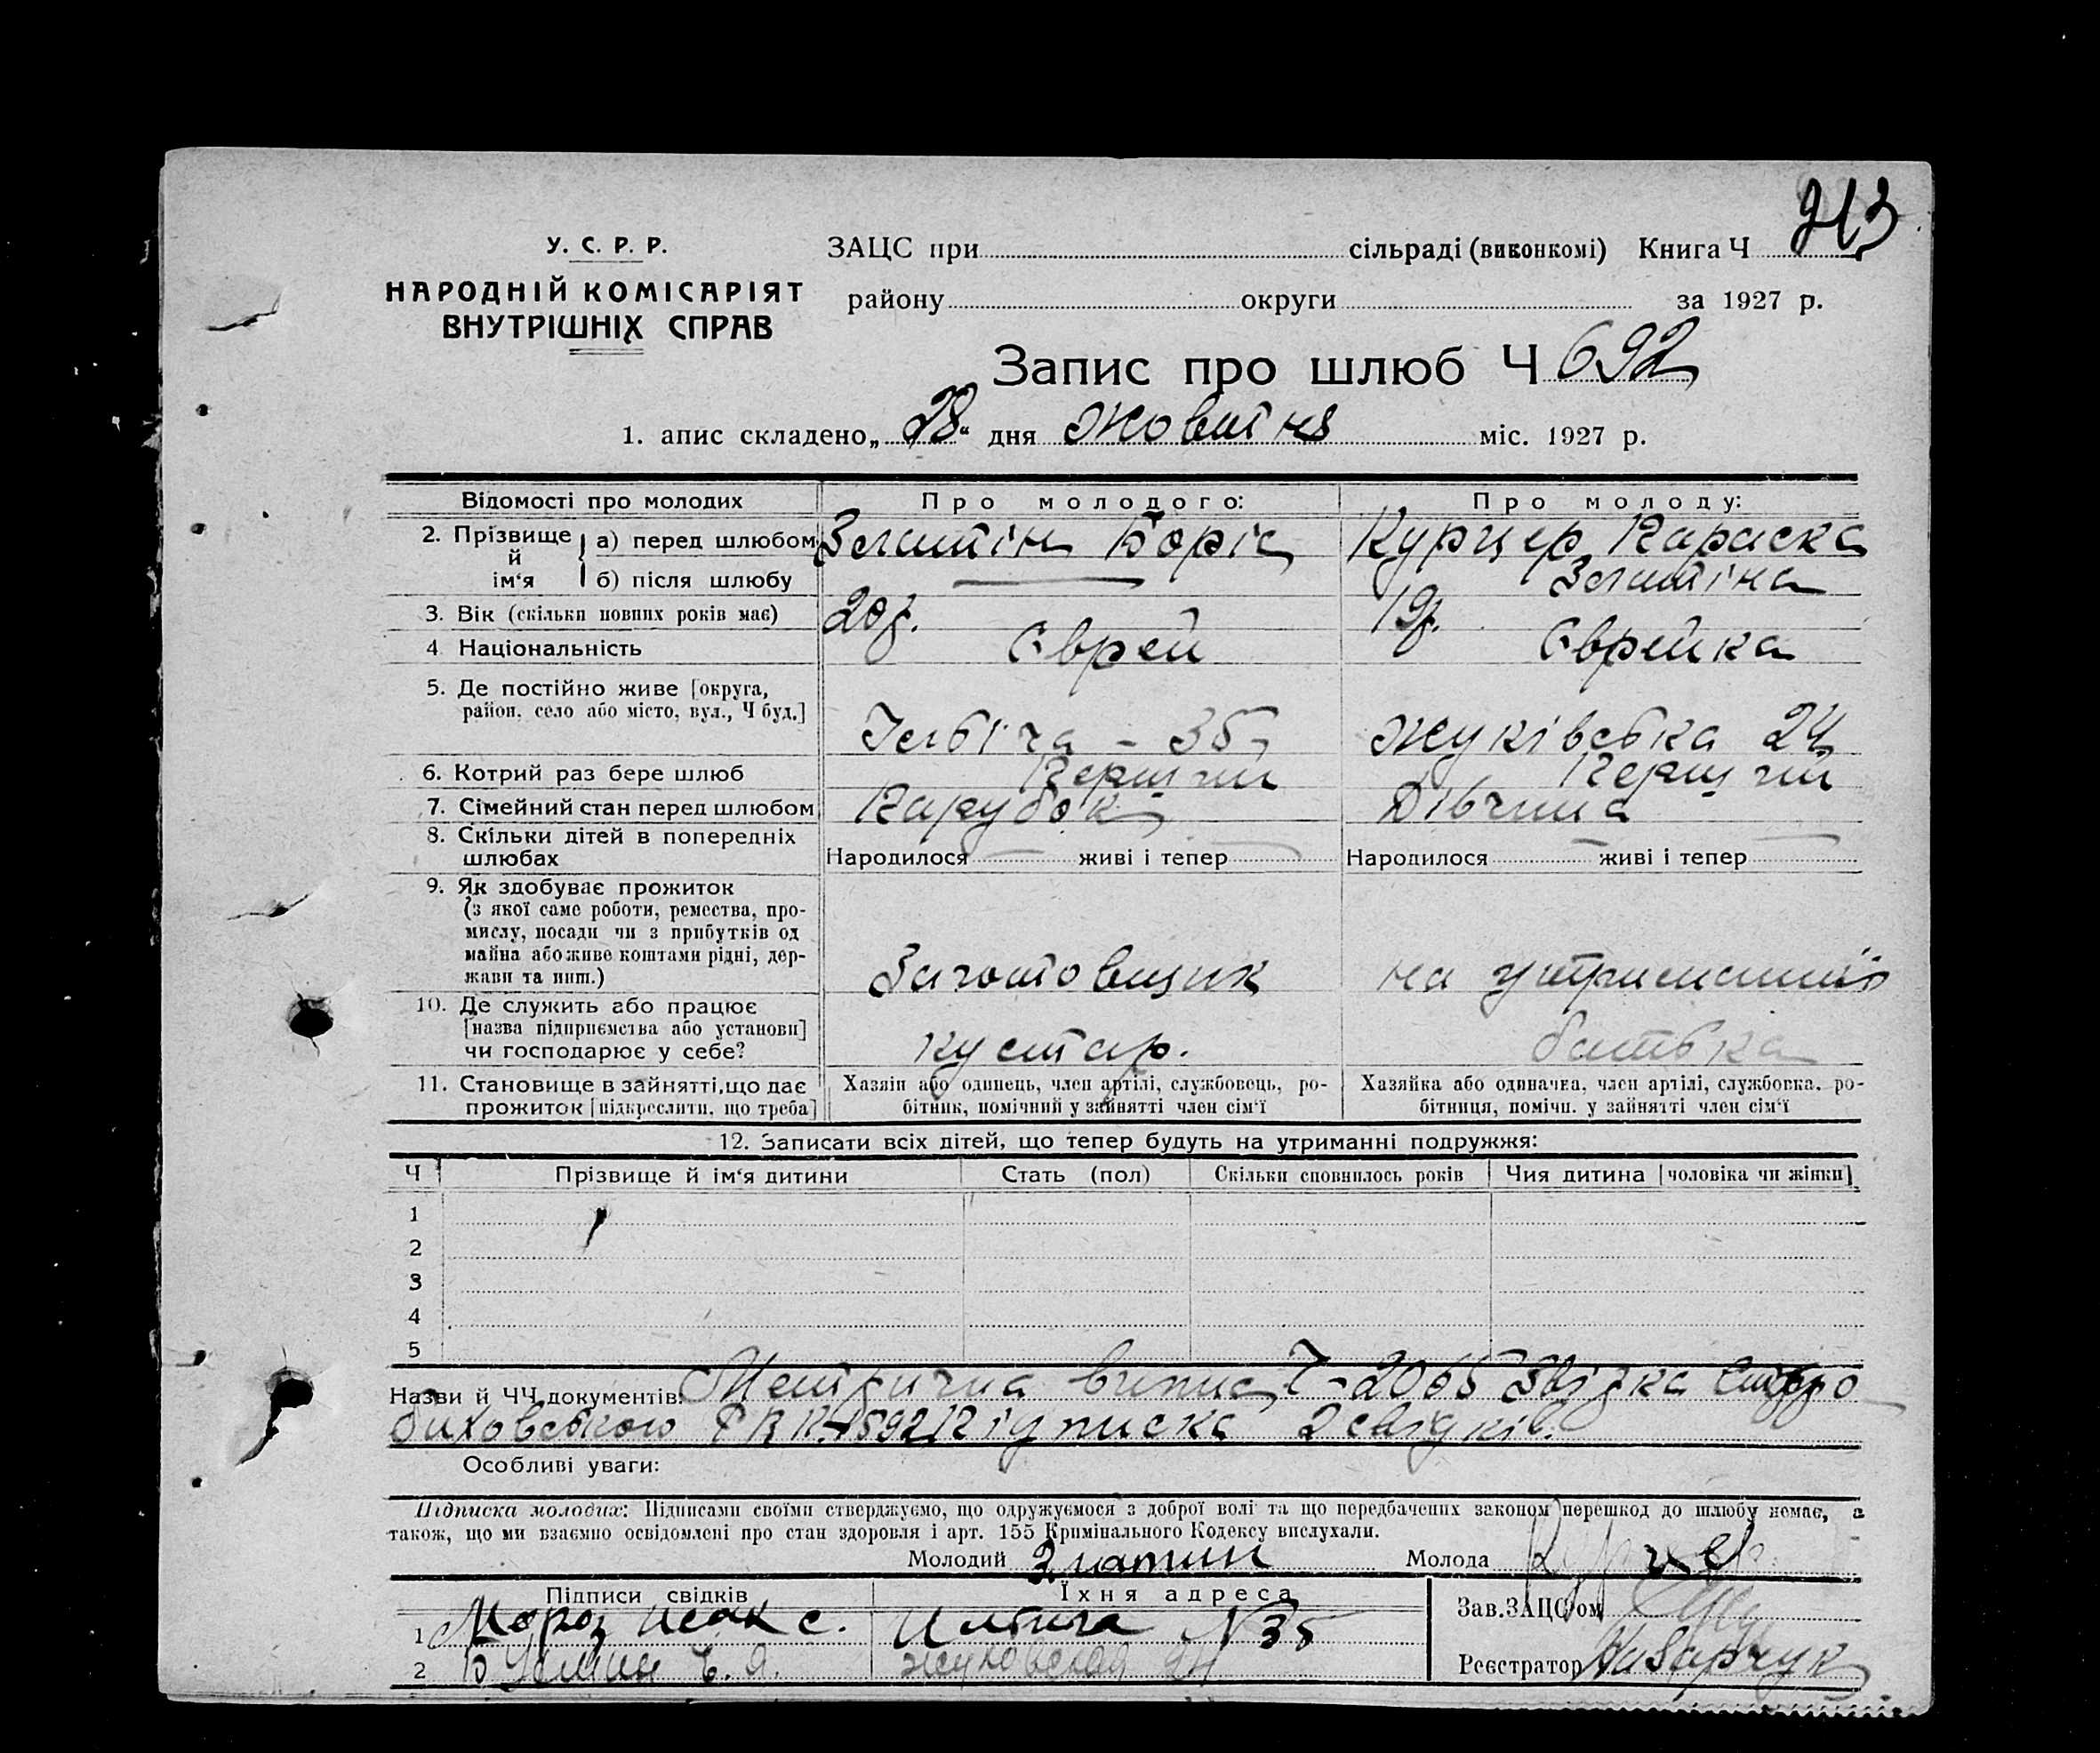 213
У. С. Р. Р.
НАРОДНІЙ КОМІСАРІЯТ
ВНУТРІШНІХ СПРАВ
ЗАЦС при сільраді (виконкомі) Книга Ч
району округи за 1927 р.
Запис про шлюб Ч 692
1. апис складено „28“ дня Жовтня міс. 1927 р.
Відомості про молодих Про молодого: Про молоду:
2. Прізвище й ім‘я а) перед шлюбом Златін Боріс Курцер Параска
б) після шлюбу Златіна
3. Вік (скільки повних років має) 20 р. 19 р.
4 Національність Єврей Єврейка
5. Де постійно живе [округа,
район, село або місто, вул., Ч буд.] Ілліча - 35 Жуківська 24
6. Котрий раз бере шлюб Перший Перший
7. Сімейний стан перед шлюбом Парубок Дівчина
8. Скільки дітей в попередніх
шлюбах Народилося живі і тепер Народилося живі і тепер
9. Як здобуває прожиток
(з якої саме роботи, ремества, про-
мислу, посади чи з прибутків од
майна або живе коштами рідні, дер-
жави та инш.) Заготовщик на утриманнії
10. Де служить або працює
[назва підприємства або установи]
чи господарює у себе? кустар. батька
11. Становище в зайнятті, що дає
прожиток [підкреслити, що треба]
Хазяін або одинець, член артілі, службовець, ро-
бітник, помічний у зайнятті член сім‘ї
Хазяйка або одиначка, член артілі, службовка, ро-
бітниця, помічн. у зайнятті член сім‘ї
12. Записати всіх дітей, що тепер будуть на утриманні подружжя:
Ч Прізвище й ім‘я дитини Стать (пол) Скільки сповнилось років Чия дитина [чоловіка чи жінки]
1
2
3
4
5
Назви й ЧЧ документів: Метрична випис Ч-2065 Звідка Старо
биховського 1592 Підписка 2 свідків.
Особливі уваги:
Підписка молодих: Підписами своїми стверджуємо, що одружуємося з доброї волі та що передбачених законом перешкод до шлюбу немає, а
також, що ми взаємно освідомлені про стан здоровля і арт. 155 Кримінального Кодексу вислухали.
Молодий Златин Молода Курцер
Підписи свідків Їхня адреса
1 Мороз Исак С. Илича N 35
2 Жуковская 24
Зав. ЗАЦС‘ом
Реєстратор Назарчук